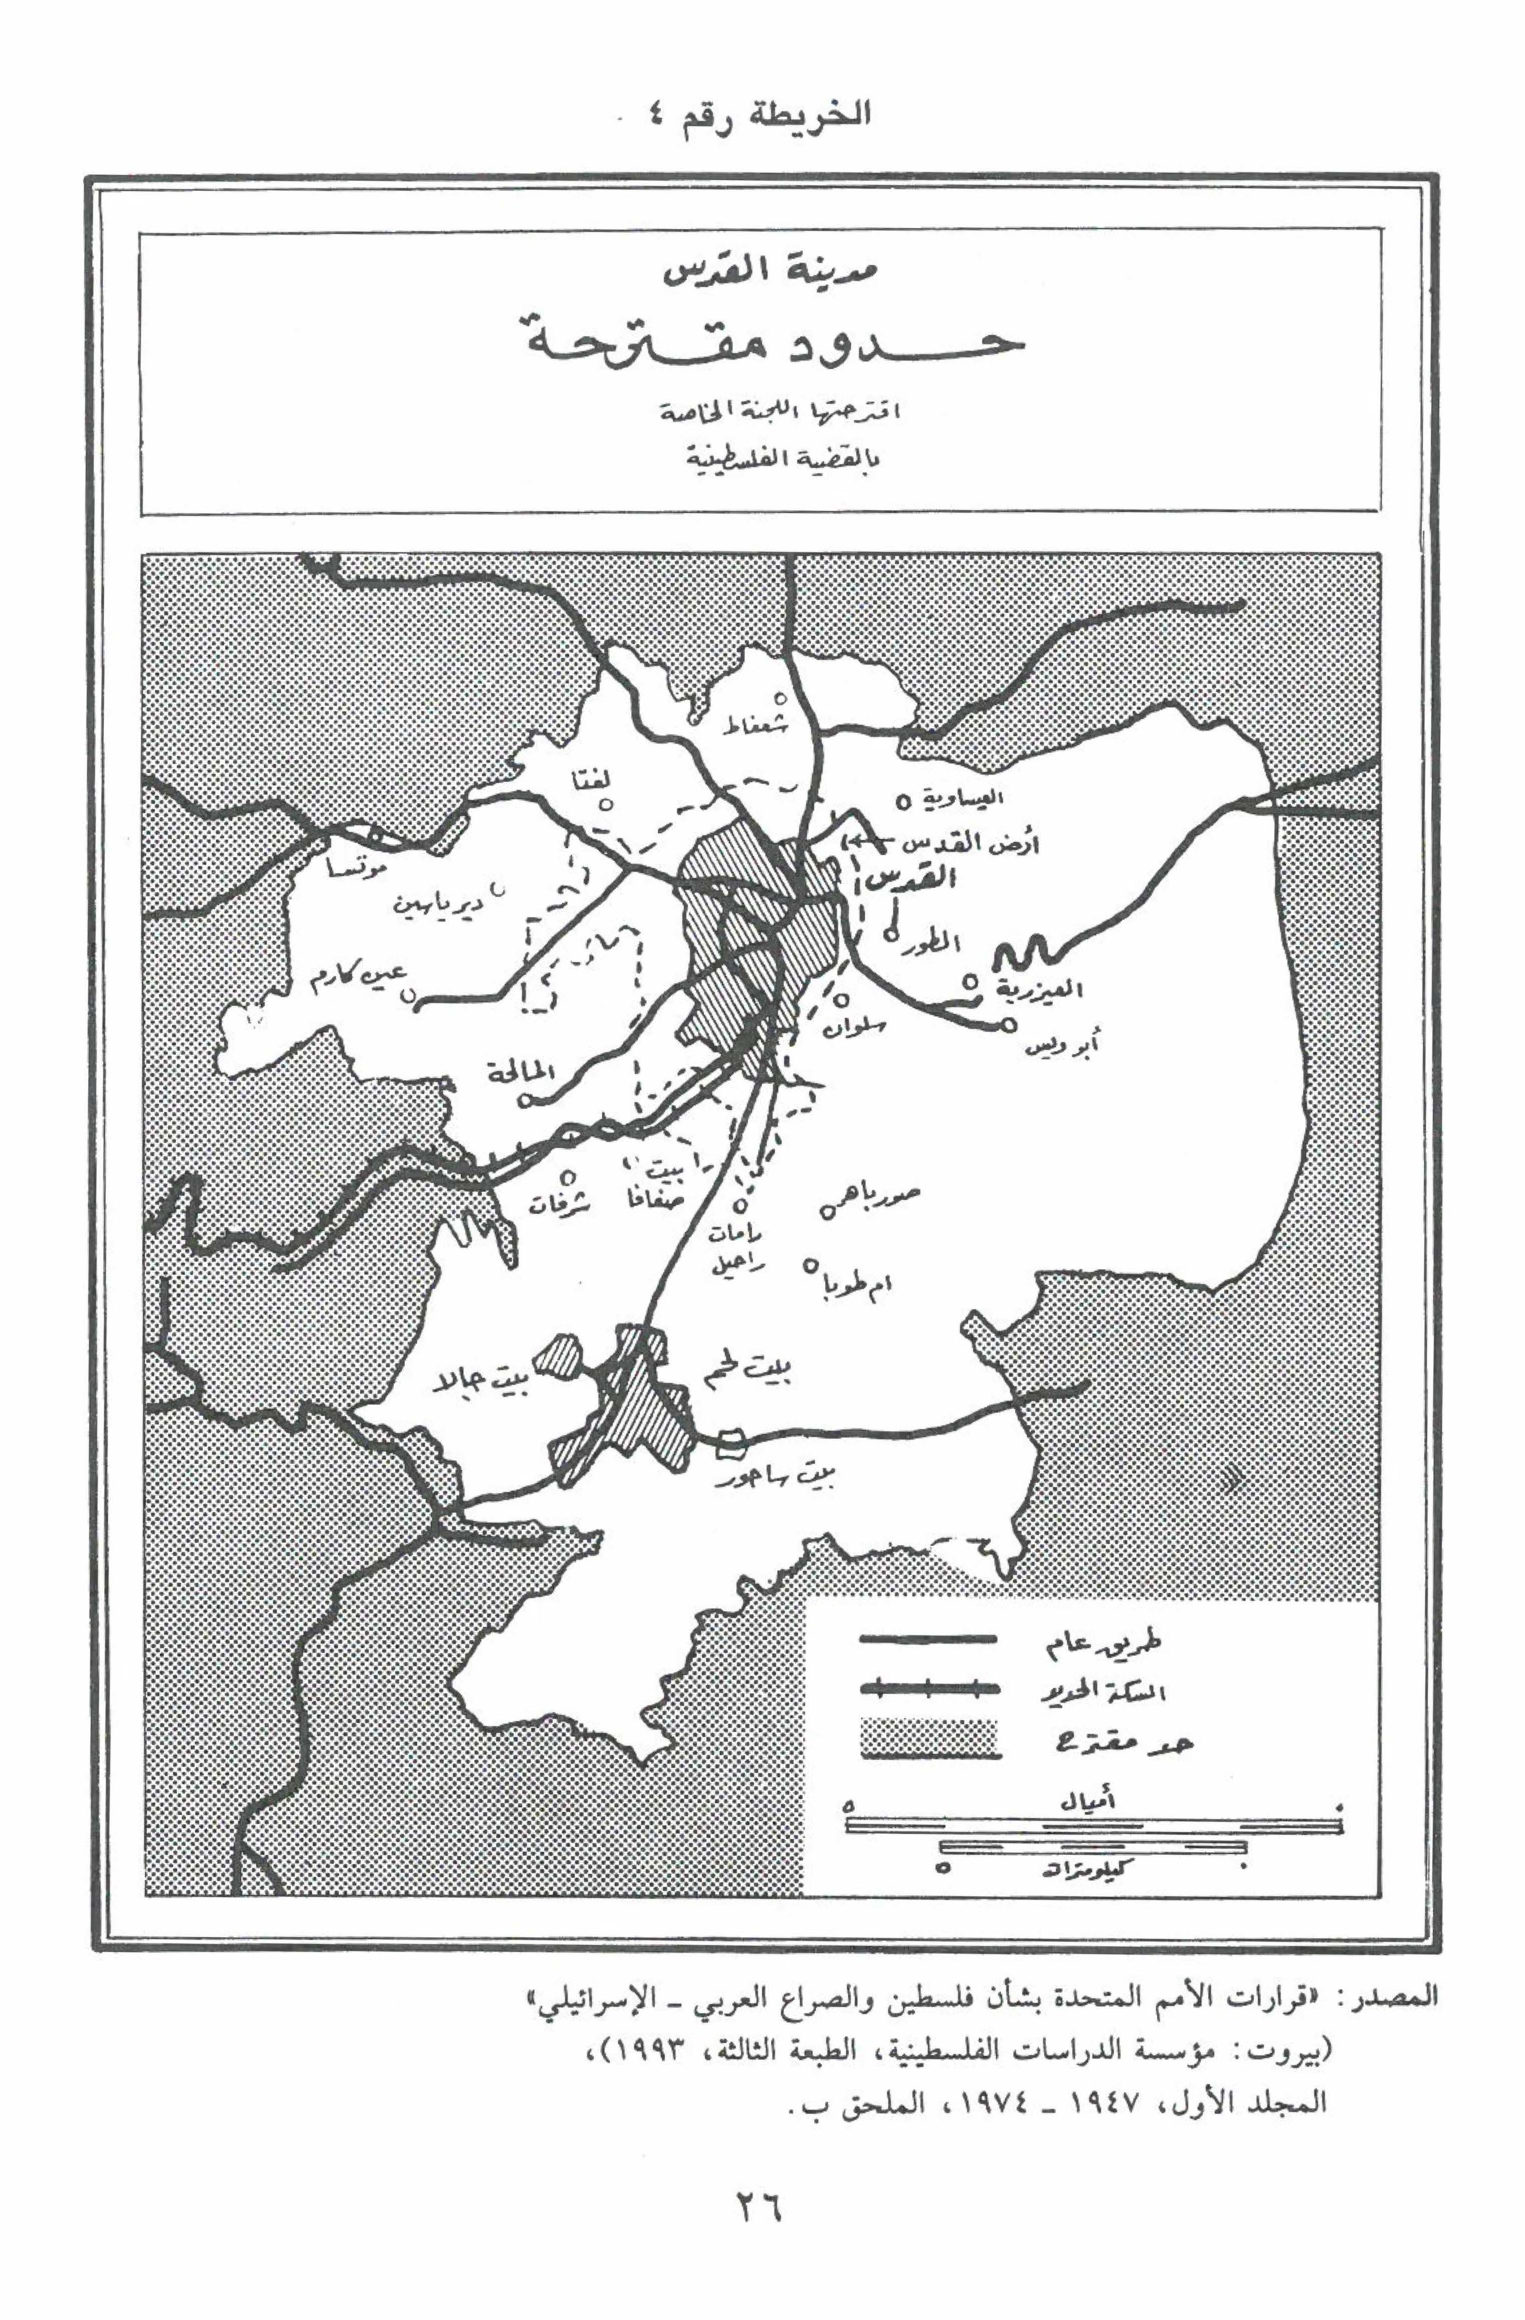 الخريطة رقم ٤
مدينة القدس
حدود مقترحة
اقترحتها اللجنة الخاصة
بالقضية الفلسطينية
شعفاط
لفتا
العيساوية
أرض القدس
القدس
موتسا
دير ياسين
الطور
عين كارم
العيزرية
سلوان
أبو ديس
المالحة
بيت
صفافا
شرفات
صور باهر
رامات
راحيل
ام طوبا
بيت لحم
بيت جالا
بيت ساحور
طريق عام
السكة الحديد
حد مقترح
أميال
٥ ٠
كيلومترات
٥ ٠
المصدر: «قرارات الأمم المتحدة بشأن فلسطين والصراع العربي ـ الإسرائيلي»
(بيروت: مؤسسة الدراسات الفلسطينية، الطبعة الثالثة، ١٩٩٣)،
المجلد الأول، ١٩٤٧ ـ ١٩٧٤، الملحق ب.
٢٦